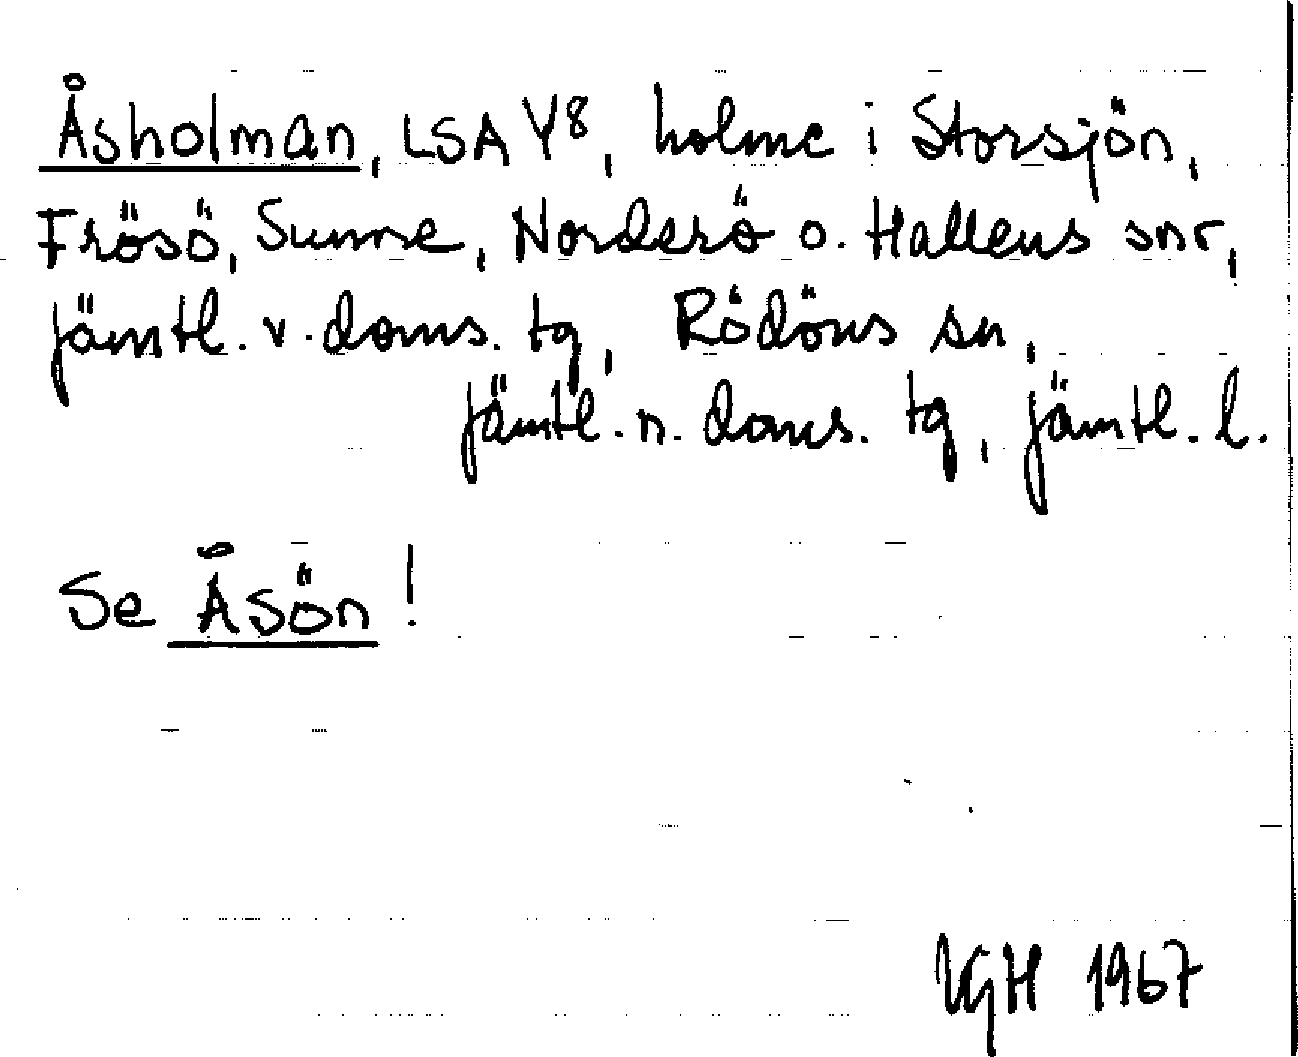 Åsholman, LSA Y8, holme i Storsjön,
Frösö, Sunne, Norderö o. Hallens snr,
Jämtl. v. doms. tg, Rödöns sn,
Jämtl. n. doms. tg, Jämtl. l.
Se Åsön!
VGH 1967